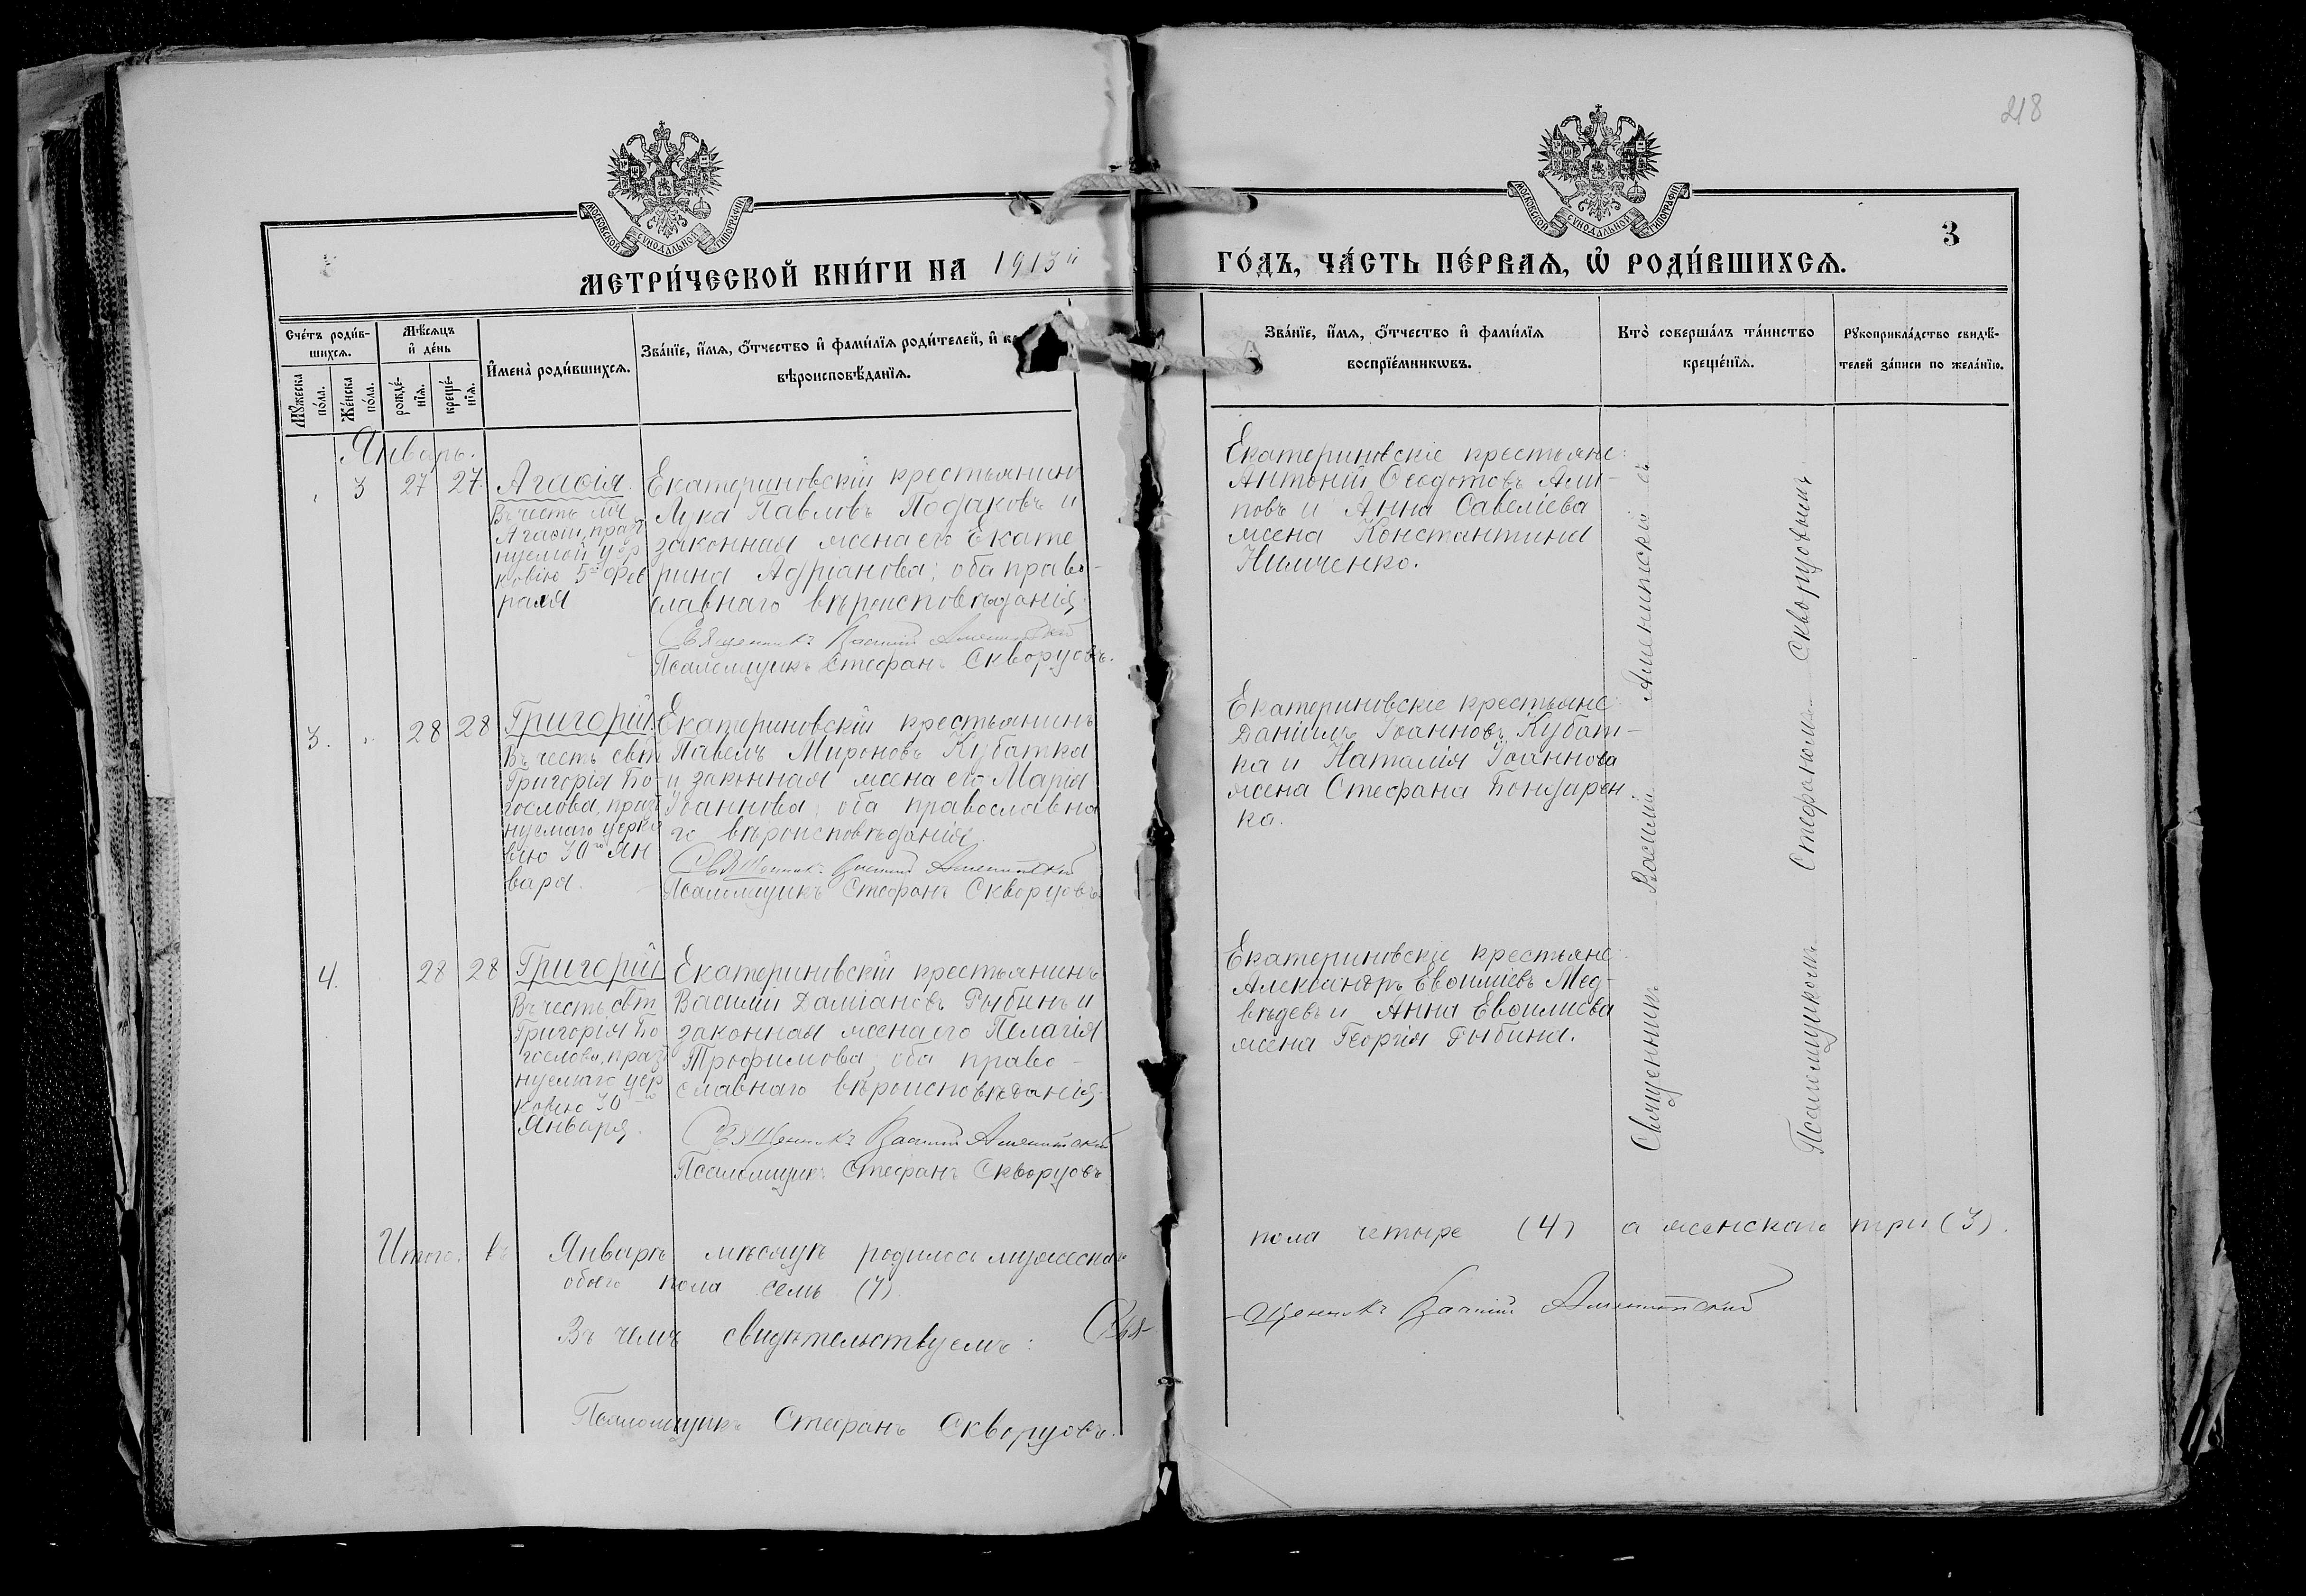 218
МОСКОВСКОЙ СУНОДАЛЬНОЙ ТИПОГРАФІИ
МОСКОВСКОЙ СУНОДАЛЬНОЙ ТИПОГРАФІИ
3
МЕТРИ́ЧЕСКОЙ КНИ́ГИ НА 1913й
ГО́ДЪ, ЧА́СТЬ ПЕ́РВАЯ, Ѡ РОДИ́ВШИХСЯ.
Сче́тъ роди́в-
шихся.
Му́жеска по́ла.
Же́нска по́ла.
Мѣ́сяцъ
и҆ де́нь
рожде́-
нїя.
креще́-
нїя.
И҆мена̀ роди́вшихся.
Зва́нїе, и҆́мя, о҆́тчество и҆ фами́лїя роди́телей, и҆
вѣроисповѣ́данїя.
Зва́нїе, и҆́мя, о҆́тчество и҆ фами́лїя
воспрїе́мникѡвъ.
Кто̀ соверша́лъ та́инство
креще́нїя.
Рꙋкоприкла́дство свидѣ́-
телей за́писи по жела́нїю.
Январь.
3 27 27
Агаѳія.
Въ честь мч.
Агаѳіи, празд
нуемой цер
ковію 5го Фев
раля
Екатериновскій крестьянинъ
Лука Павловъ Подаковъ и
законная жена его Екате
рина Адріанова; оба право-
славнаго вѣроисповѣданія.
Священникъ Василій Аменитскій
Псаломщикъ Стефанъ Скворцовъ.
Екатериновскіе крестьяне:
Антоній Ѳеодотовъ Али-
повъ и Анна Савеліева
жена Константина
Нимченко.
3. 28 28
Григорій.
Въ честь свт.
Григорія Бо-
гослова, празд
нуемаго церко
вію 30го Ян
варя.
Екатериновскій крестьянинъ
Павелъ Мироновъ Кубатка
и законная жена его Марія
Іоаннова; оба православна
го вѣроисповѣданія.
Священникъ Василій Аменитскій
Псаломщикъ Стефанъ Скворцовъ.
Екатериновскіе крестьяне:
Даніилъ Іоанновъ Кубат-
ка и Наталія Іоаннова
жена Стефана Бондарен
ка.
4. 28 28
Григорій
Въ честь свт.
Григорія Бо
гослова, празд
нуемаго цер
ковію 30го
Января.
Екатериновскій крестьянинъ
Василій Даміановъ Рыбинъ и
законная жена его Пелагія
Трофимова; оба право-
славнаго вѣроисповѣданія.
Священникъ Василій Аменитскій
Псаломщикъ Стефанъ Скворцовъ
Екатериновскіе крестьяне:
Александръ Евѳиміевъ Мед-
вѣдевъ и Анна Евѳиміева
жена Георгія Рыбина.
Священникъ Василій Аменитскій съ
Псаломщикомъ Стефаномъ Скворцовымъ
Итого: въ Январѣ мѣсяцѣ родилось мужескаго
пола четыре (4) а женскаго три (3).
обоего пола семь (7)
Въ чемъ свидѣтельствуемъ: Свя-
щенникъ Василій Аменитскій
Псаломщикъ Стефанъ Скворцовъ.